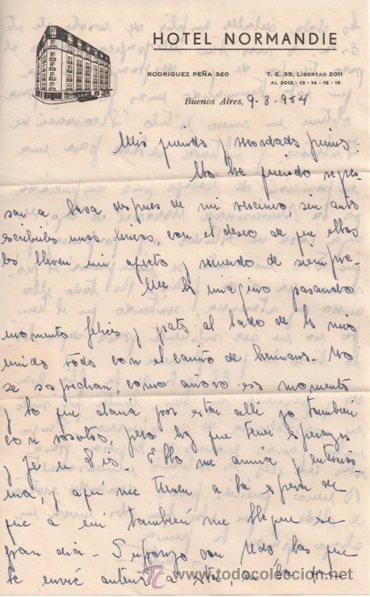 HOTEL NORMANDIE
RODRIGUEZ PEÑA 320
T. E. 35, LIBERTAD 2011
AL 2012 - 13 - 14 - 15 - 16
Buenos Aires, 9-3-954
Mis queridos y recordados primos:
No he querido regre
sar a casa, después de mi veraneo, sin antes
escribirles unas líneas, con el deseo de que ellas
les lleven mi afecto y recuerdo de siempre.
Me los imagino pasando
momentos felices y gratos al lado de los míos
unidos todos con el cariño de hermanos. No
se sospechan, como añoro esos momentos
y lo que daría por estar allí yo también
con vosotros, pero hay que tener esperanzas
y fe en Dios. Ello me anima y entusias
ma, y aquí me tienen a la espera de
que a mí también me llegue ese
gran día. Supongo
le envié antes de
todocoleccion
www.todocoleccion.net